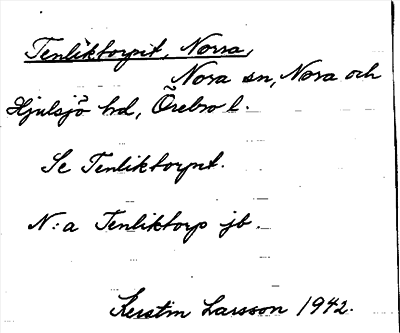 Tenliktorpit, Norra,
Nora sn, Nora och
Hjulsjö hd, Örebro l.
Se Tenliktorpit.
N:a Tenliktorp jb.
Kerstin Larsson 1942.